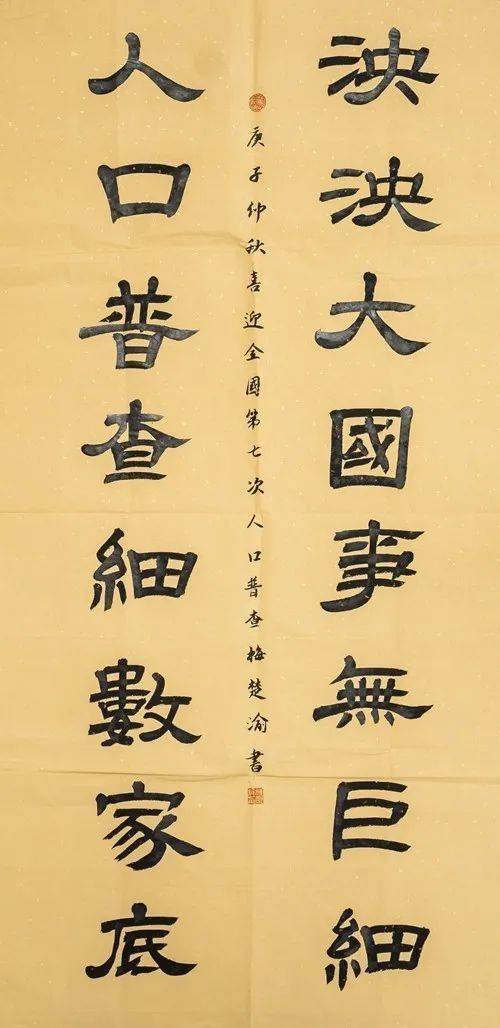 泱泱大國事無巨細
庚子仲秋喜迎全國第七次人口普查梅楚渝書
人口普查細數家底